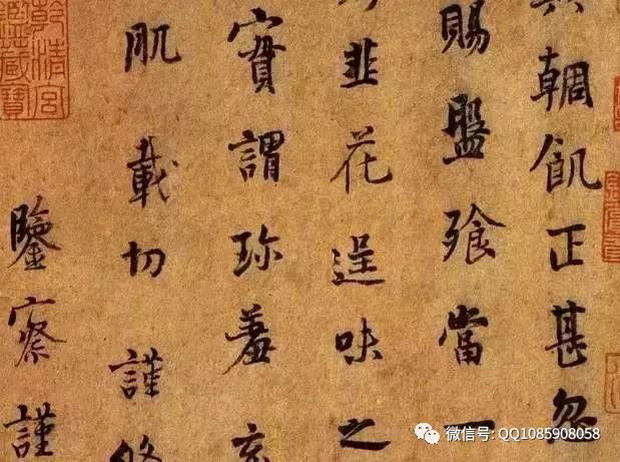 輖飢正甚忽
賜盤飧當一
韭花逞味之
實謂珍羞充
肌載切謹修
鑒察謹
乾清宮
鑑藏寶
微信号: QQ1085908058